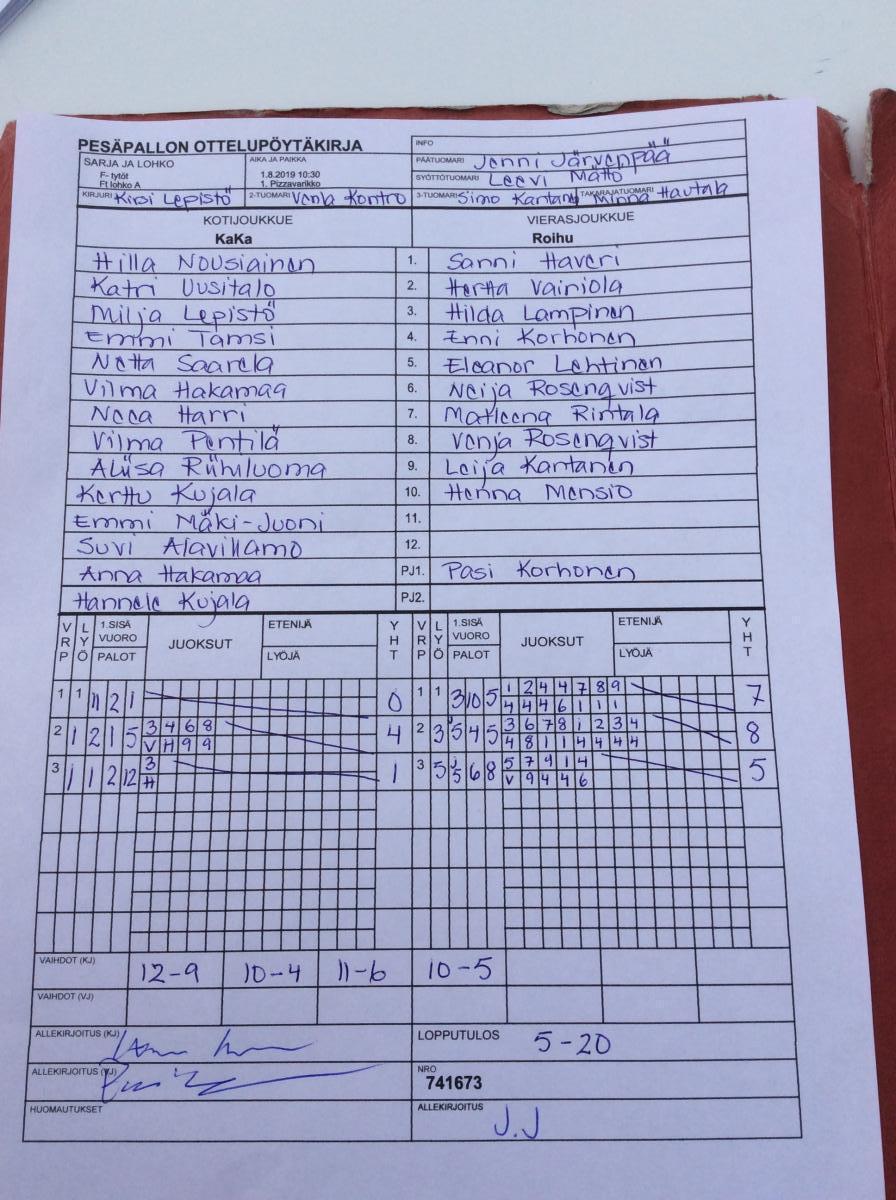 PESÄPALLON OTTELUPÖYTÄKIRJA
INFO
SARJA JA LOHKO
F- tytöt
Ft lohko A
AIKA JA PAIKKA
1.8.2019 10:30
1. Pizzavarikko
PÄÄTUOMARI Jenni Järvenpää
SYÖTTÖTUOMARI Leevi Mättö
KIRJURI Kirsi Lepistö 2-TUOMARI Venla Kontro 3-TUOMARI Simo Kantan TAKARAJATUOMARI Minna Hautala
KOTIJOUKKUE VIERASJOUKKUE
KaKa Roihu
Hilla Nousiainen 1. Sanni Haveri
Katri Uusitalo 2. Hertta Vainiola
Milja Lepistö 3. Hilda Lampinen
Emmi Tamsi 4. Enni Korhonen
Netta Saarela 5. Eleanor Lehtinen
Vilma Hakamaa 6. Neija Rosenqvist
Neea Harri 7. Matleena Rintala
Vilma Pentilä 8. Venja Rosenqvist
Aliisa Riihiluoma 9. Leija Kantanen
Kerttu Kujala 10. Henna Mensio
Emmi Mäki-Juoni 11.
Suvi Alavillamo 12.
Anna Hakamaa PJ1. Pasi Korhonen
Hannele Kujala PJ2.
VRP LYÖ 1.SISÄ VUORO PALOT JUOKSUT ETENIJÄ LYÖJÄ YHT VRP LYÖ 1.SISÄ VUORO PALOT JUOKSUT ETENIJÄ LYÖJÄ YHT
1 1 11 2 1 0 1 1 3 10 5 1 2 4 4 7 8 9 7
4 4 4 6 1 1 1
2 1 2 1 5 3 4 6 8 4 2 3 5 4 5 3 6 7 8 1 2 3 4 8
V H 9 9 4 8 1 1 4 4 4 4
3 1 1 2 12 3 1 3 5 5 6 8 5 7 9 1 4 5
H V 9 4 4 6
VAIHDOT (KJ) 12-9 10-4 11-6 10-5
VAIHDOT (VJ)
ALLEKIRJOITUS (KJ) LOPPUTULOS 5-20
ALLEKIRJOITUS (VJ) NRO
741673
HUOMAUTUKSET ALLEKIRJOITUS J.J